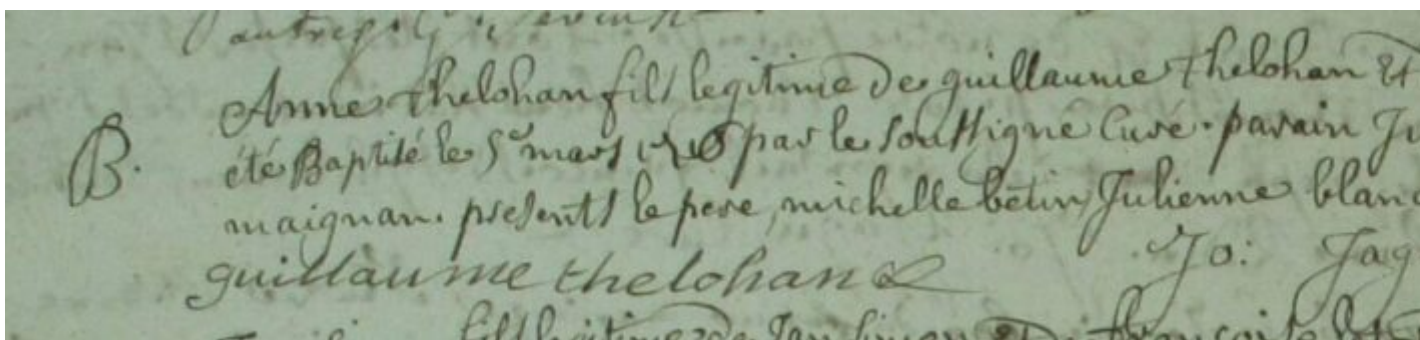 Anne thelohan fils legitime de guillaume thelohan et
B. été Baptisé le 5e mars 1716 par le soussigné Curé. parain Ju
maignan. presents le pere, michelle betin, Julienne blanc
guillaume thelohan Jo: Jag
fils legitime de Jan et de françoise